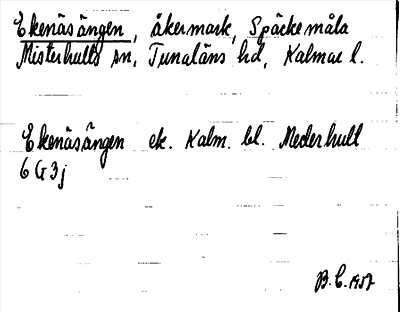 Ekenäsängen, åkermark, Späckemåla
Misterhults sn, Tunaläns hd, Kalmar l.
Ekenäsängen ek. Kalm. bl. Mederhult
6 G 3j
B.C. 1957